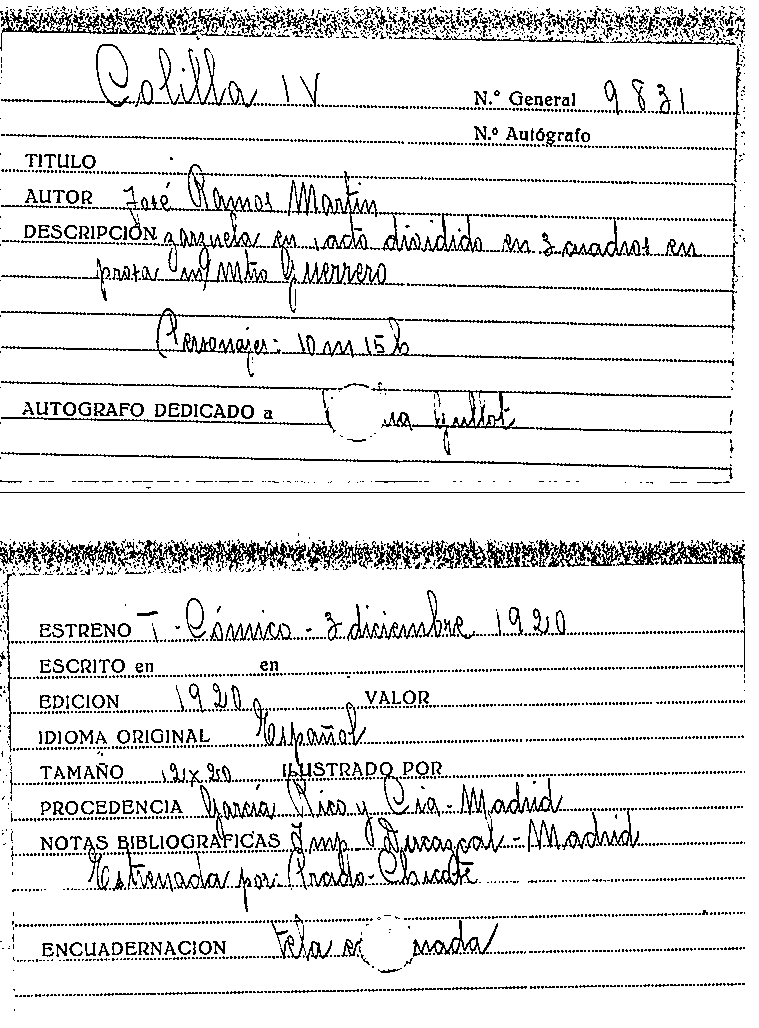 Colilla IV N.º General 9831
N.º Autógrafo
TITULO
AUTOR José Ramos Martin
DESCRIPCIÓN zarzuela en 1 acto dividido en 3 cuadros en
prosa Mtro Guerrero
Personajes: 10 m 15 h
AUTOGRAFO DEDICADO a Gullot
ESTRENO T. Cómico - 3 diciembre 1920
ESCRITO en en
EDICION 1920 VALOR
IDIOMA ORIGINAL Español
TAMAÑO 12 x 20 ILUSTRADO POR
PROCEDENCIA García Rico y Cia - Madrid
NOTAS BIBLIOGRAFICAS Imp. Ducazcal - Madrid
Estrenada por: Prado-Chicote
ENCUADERNACION tela